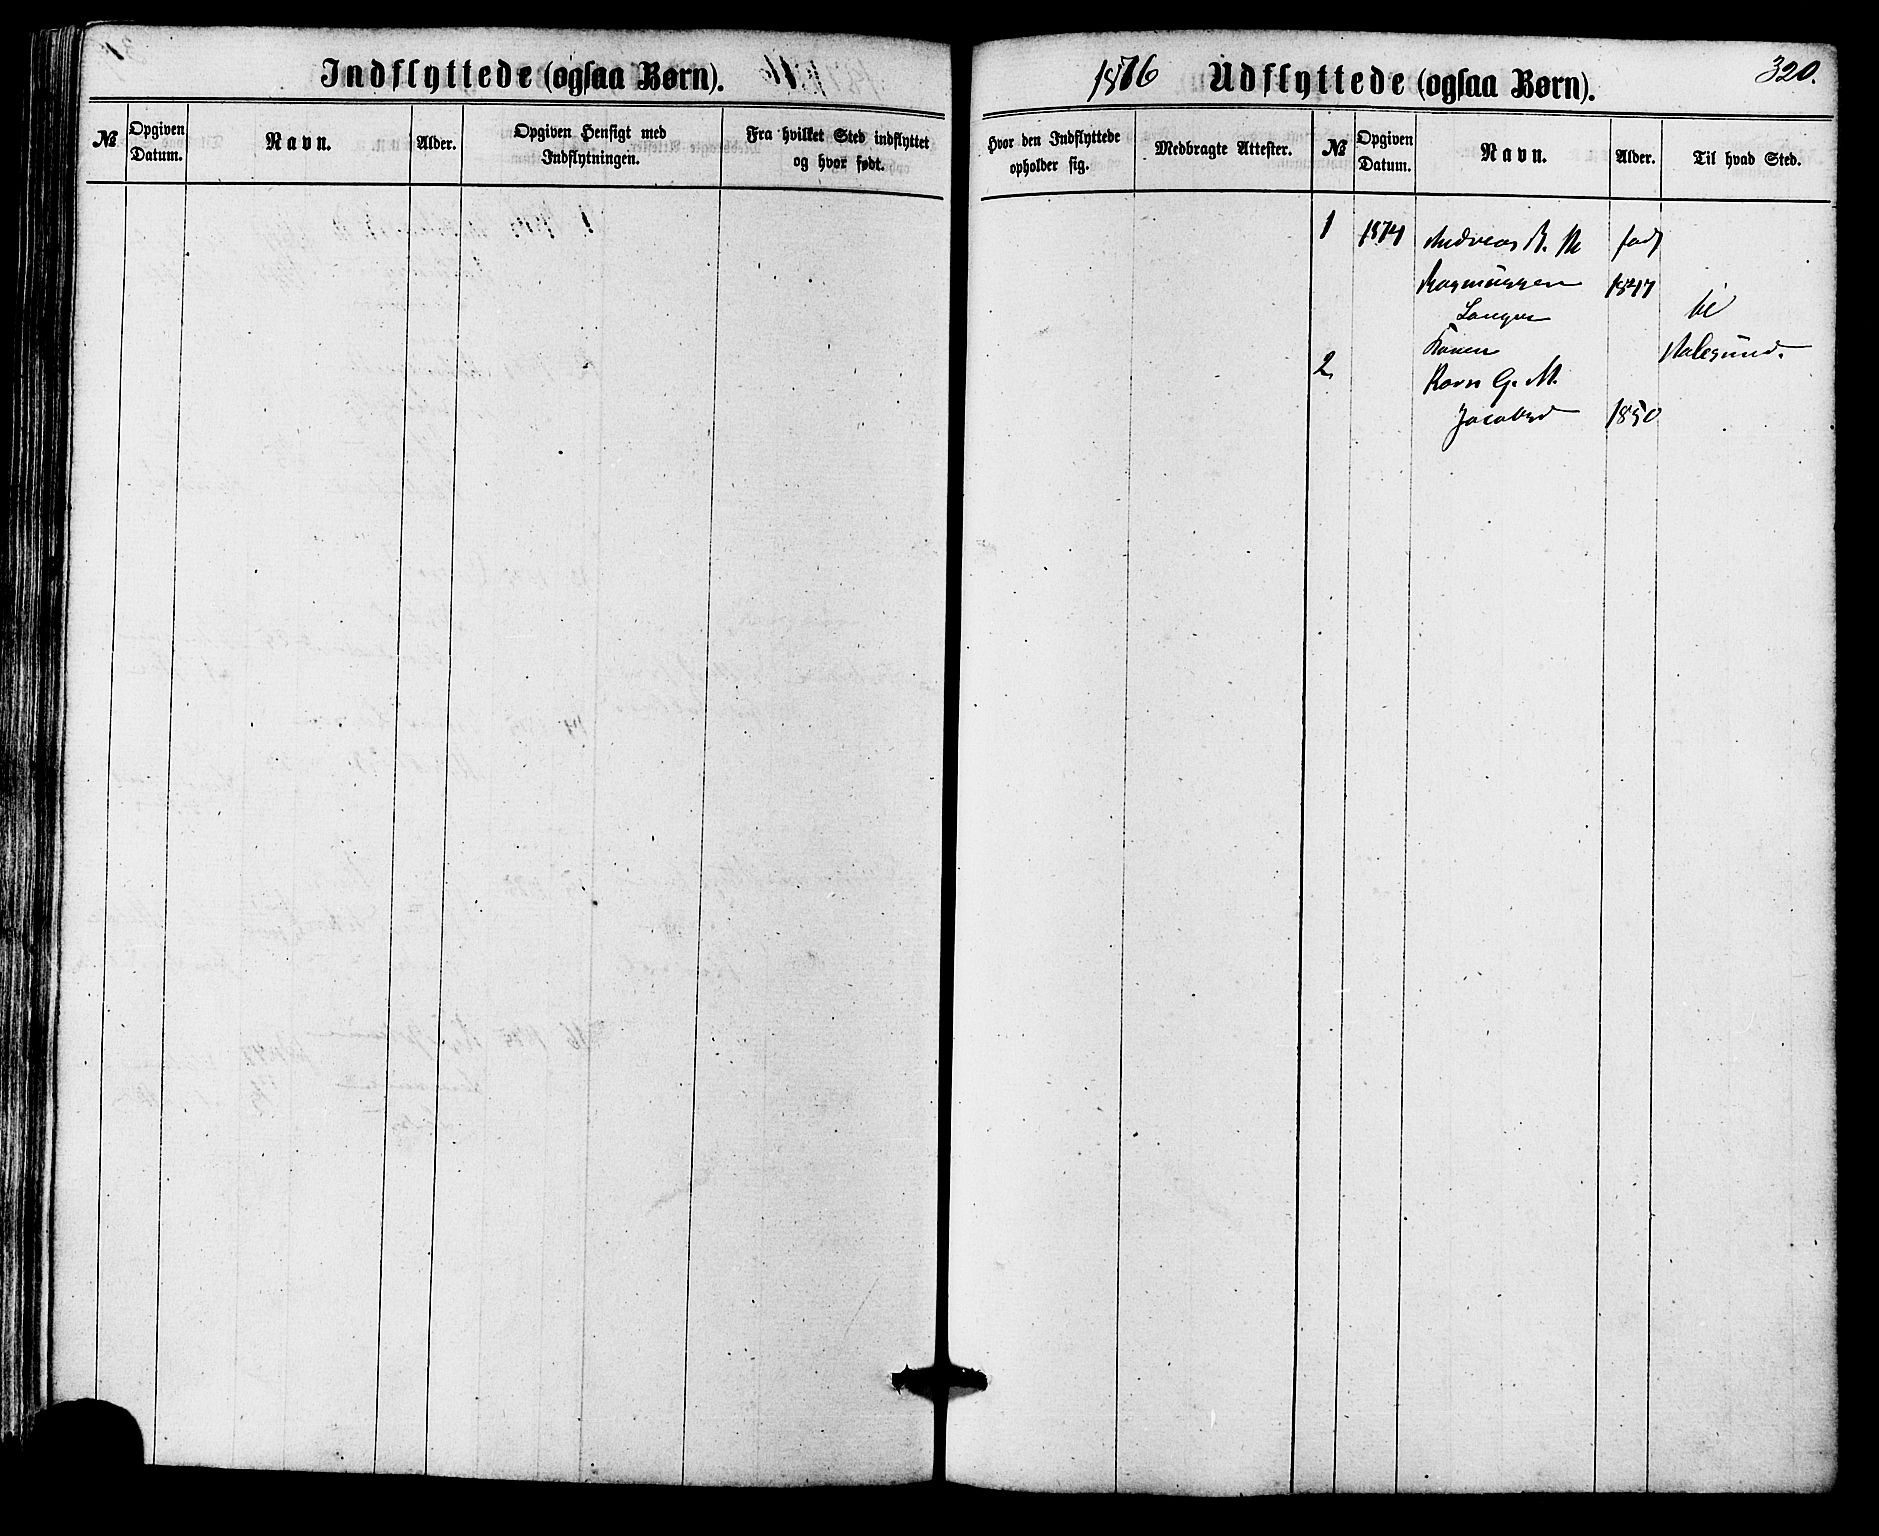 Indflyttede (ogsaa Børn).
№
Opgiven Datum.
Navn.
Alder.
Opgiven Hensigt med Indflytningen.
Fra hvilket Sted indflyttet og hvor født.
1876 Udflyttede (ogsaa Børn).
320.
Hvor den Indflyttede opholder sig.
Medbragte Attester.
№
Opgiven Datum.
Navn.
Alder.
Til hvad Sted.
1 1874 Andreas B. M fød
Rasmussen 1847
til
Konen Aalesund.
2 Karn G. M.
Jacobsd 1850